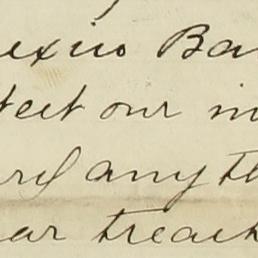 exico Ba
tect our in
ard any th
ear treach